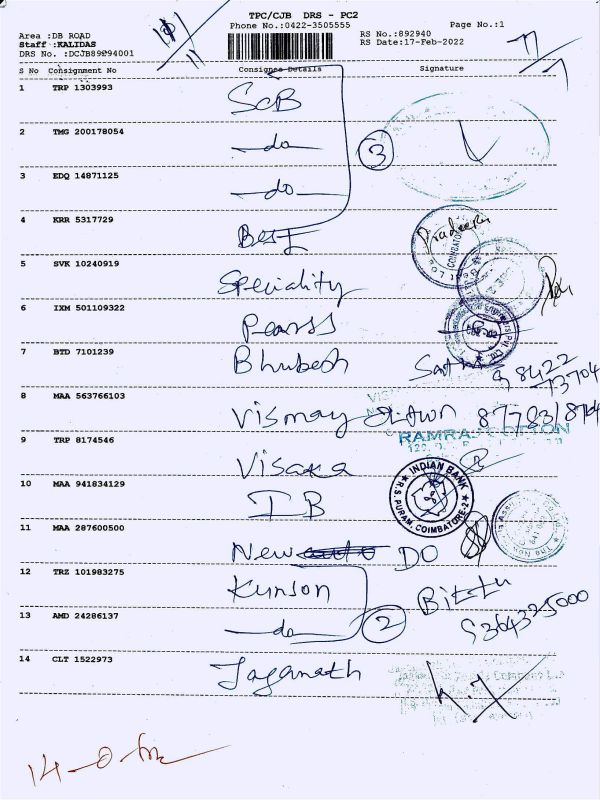 TPC/CJB DRS - PC2
Phone No.:0422-3505555
Page No.:1
Area :DB ROAD
RS No.:892940
Staff :KALIDAS
RS Date:17-Feb-2022
S No Consignment No Consignee Details Signature
1 TRP 1303993 SCB
2 TMG 200178054 do
3
3 EDQ 14871125 do
4 KRR 5317729 Best
Pradeep
5 SVK 10240919 Speciality
6 IXM 501109322
7 BTD 7101239 Bhubesh
98422
73704
8 MAA 563766103 Vismay
RAMRAJ COTTON
9 TRP 8174546 Visaka
10 MAA 941834129 IB
INDIAN BANK
R.S. PURAM, COIMBATORE-2
11 MAA 287600500 New DO
12 TRZ 101983275 Kunson
Bittu
13 AMD 24286137 do
2
14 CLT 1522973 Jaganath